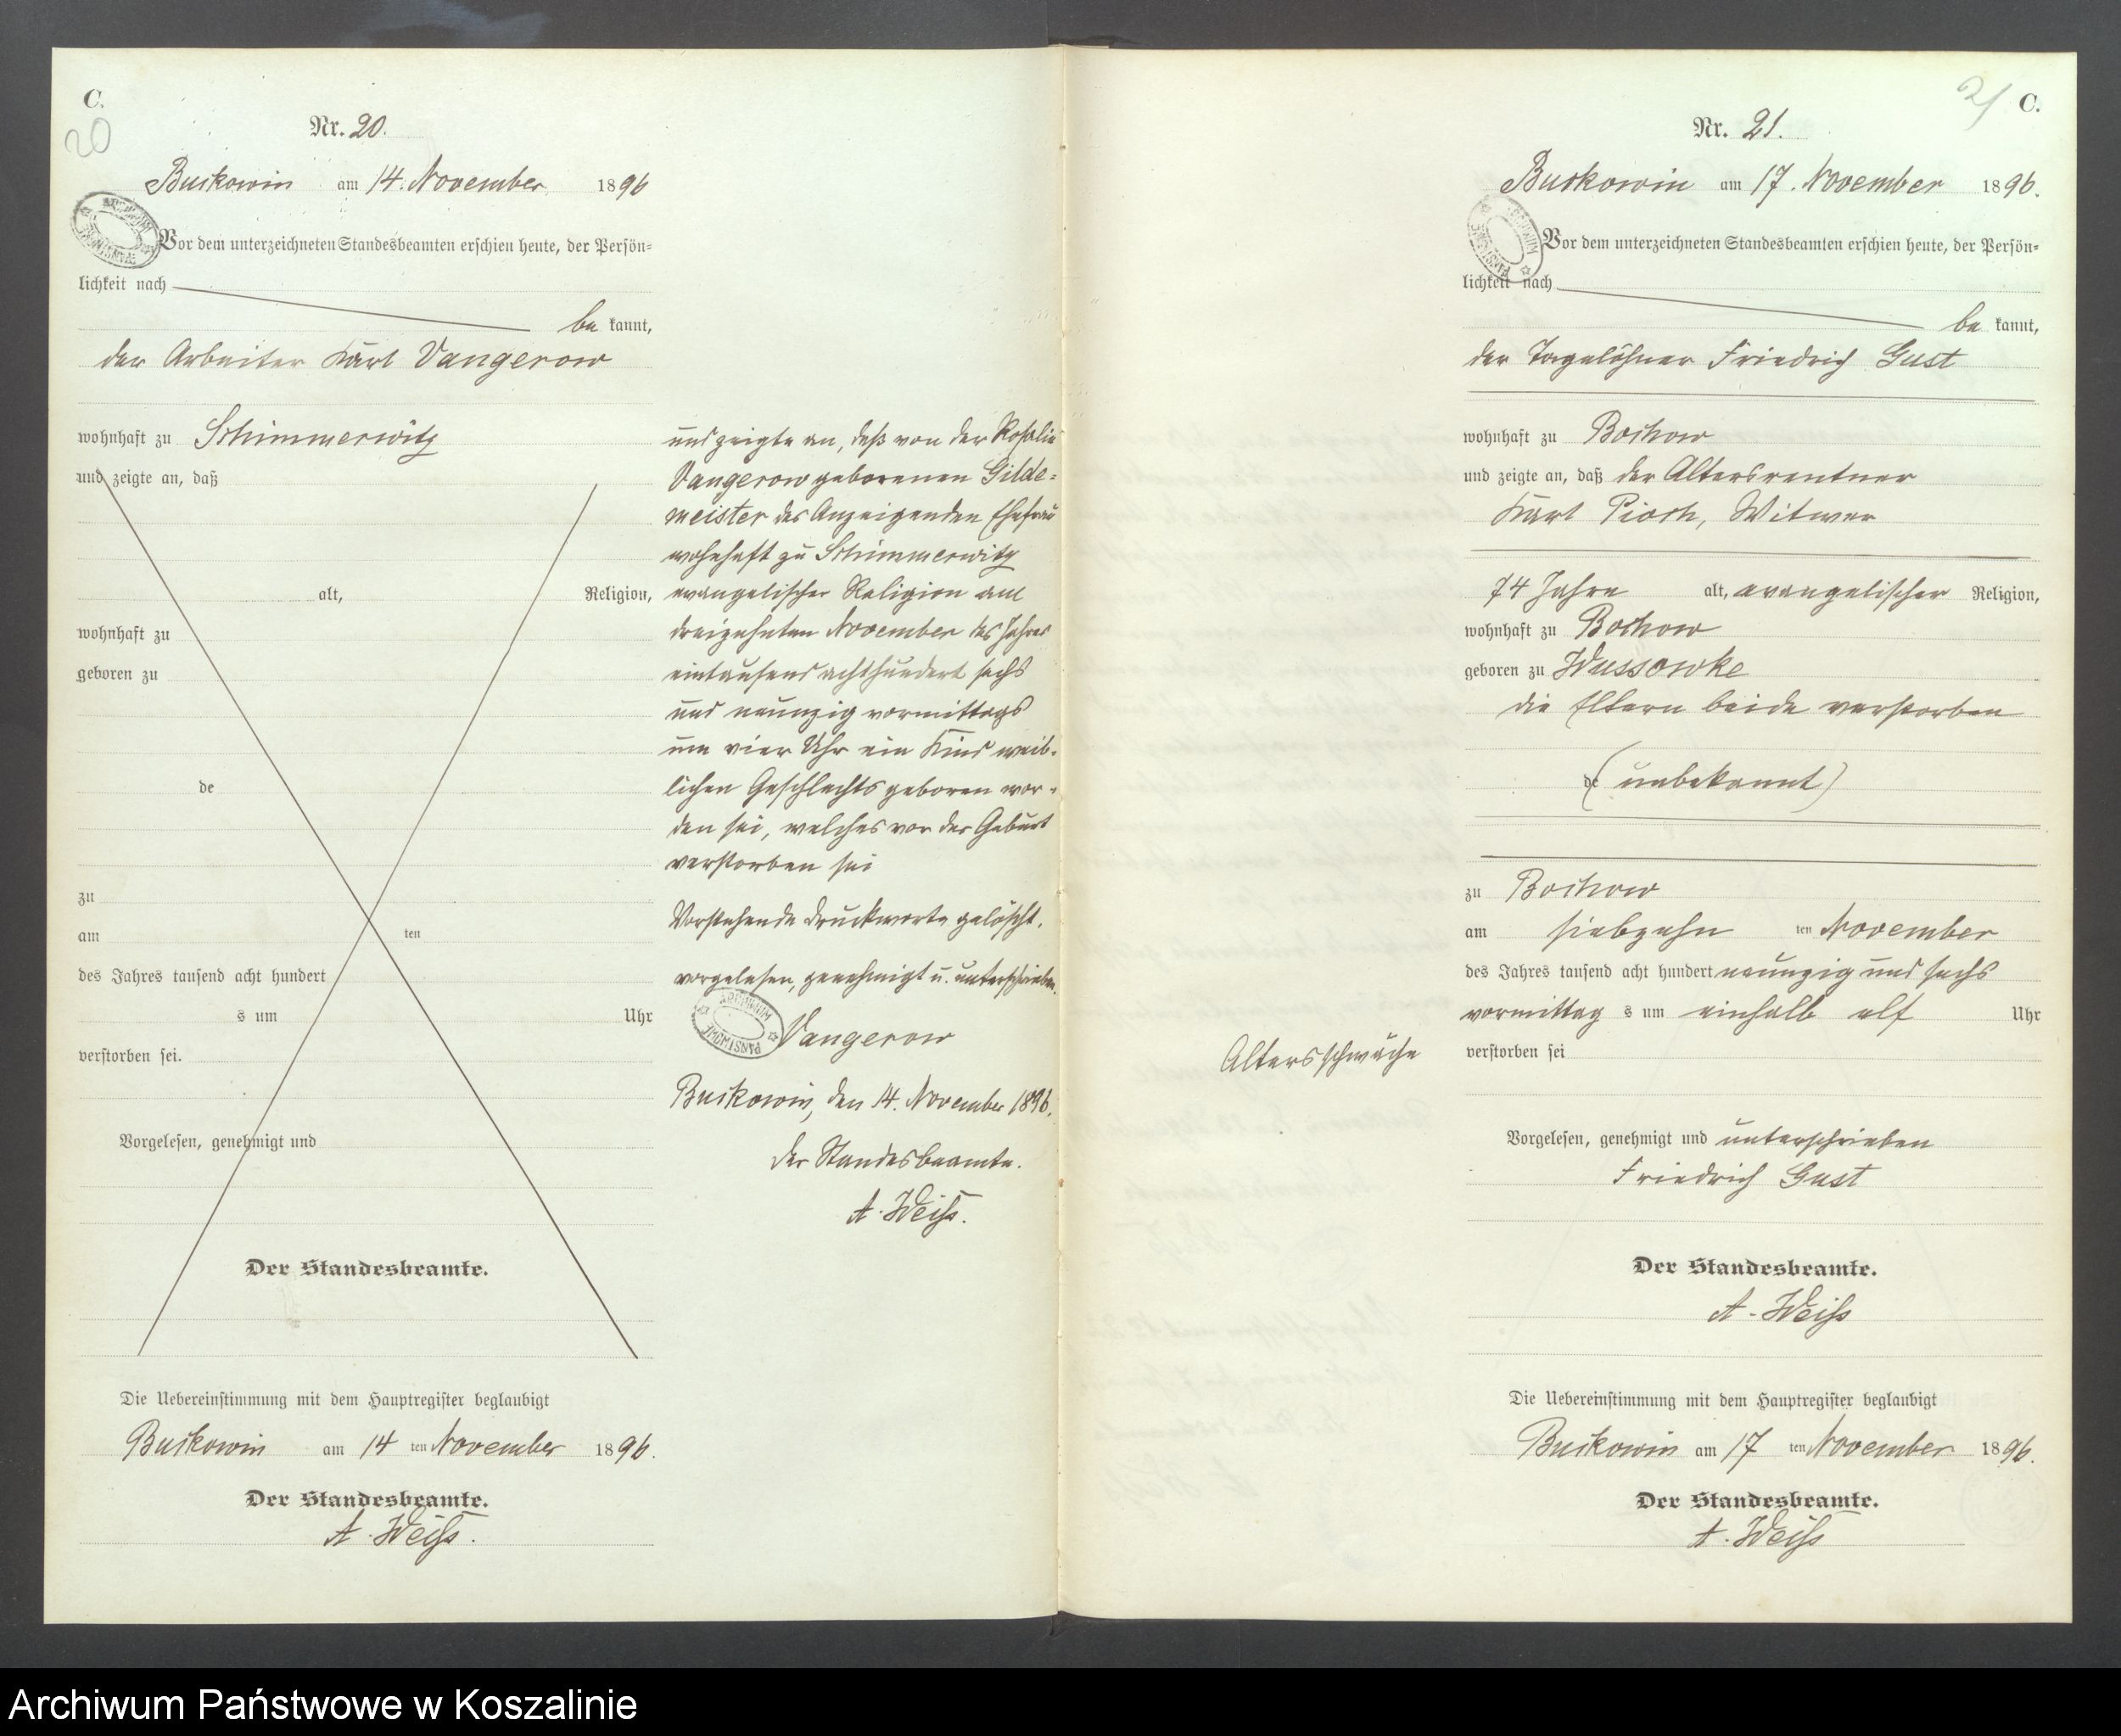 C.
20
Nr. 20.
Buckowin am 14. November 1896
Vor dem unterzeichneten Standesbeamten erschien heute, der Persön=
lichkeit nach
be kannt,
der Arbeiter Karl Vangerow
wohnhaft zu Schimmerwitz
und zeigte an, daß
alt, Religion,
wohnhaft zu
geboren zu
de
zu
am ten
des Jahres tausend acht hundert
s um Uhr
verstorben sei.
Vorgelesen, genehmigt und
Der Standesbeamte.
Die Uebereinstimmung mit dem Hauptregister beglaubigt
Buckowin am 14 ten November 1896.
Der Standesbeamte.
A. Weiß.
und zeigte an, daß von der Rosalie
Vangerow geborenen Gilde=
meister des Anzeigenden Ehefrau
wohnhaft zu Schimmerwitz
evangelischer Religion am
dreizehnten November des Jahres
eintausend achthundert sechs
und neunzig vormittags
um vier Uhr ein Kind weib=
lichen Geschlechts geboren wor=
den sei, welches vor der Geburt
verstorben sei
Vorstehende Druckworte gelöscht.
vorgelesen, genehmigt u. unterschrieben.
ARCHIWUM PAŃSTWOWE
Vangerow
Buckowin, den 14. November 1896.
Der Standesbeamte.
A. Weiß.
21
C.
Nr. 21.
Buckowin am 17. November 1896.
Vor dem unterzeichneten Standesbeamten erschien heute, der Persön=
lichkeit nach
be kannt,
der Tagelöhner Friedrich Gust
wohnhaft zu Bochow
und zeigte an, daß der Altersrentner
Karl Pioch, Witwer
74 Jahre alt, evangelischer Religion,
wohnhaft zu Bochow
geboren zu Wussowke
die Eltern beide verstorben
de (unbekannt)
zu Bochow
am siebzehn ten November
des Jahres tausend acht hundert neunzig und sechs
vormittag s um einhalb elf Uhr
Altersschwäche
verstorben sei
Vorgelesen, genehmigt und unterschrieben
Friedrich Gust
Der Standesbeamte.
A. Weiß
Die Uebereinstimmung mit dem Hauptregister beglaubigt
Buckowin am 17 ten November 1896.
Der Standesbeamte.
A. Weiß
Archiwum Państwowe w Koszalinie